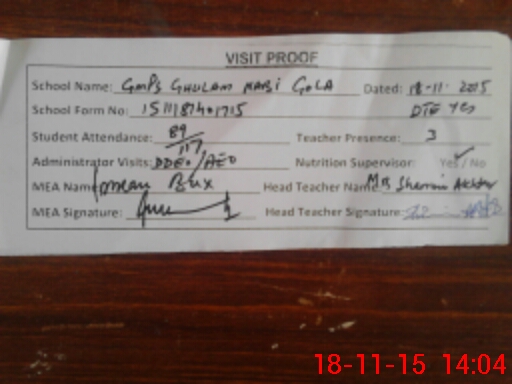 VISIT PROOF
School Name: GMPS GHULAM NABI GOLA Dated: 18-11-2015
School Form No: DTE Yes
Student Attendance: 89/117 Teacher Presence: 3
Administrator Visits: DDEO/AEO Nutrition Supervisor: Yes / No
MEA Name: Bux Head Teacher Name: Akhtar
MEA Signature: Head Teacher Signature:
18-11-15 14:04